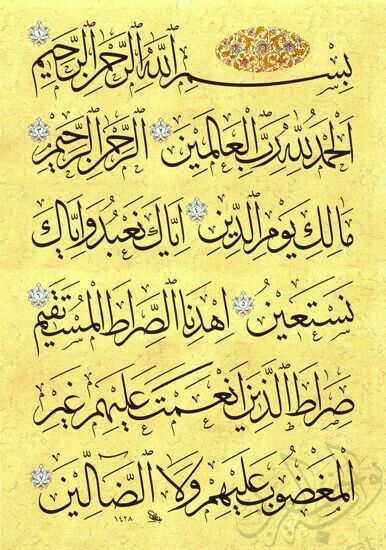 بِسْمِ اللَّهِ الرَّحْمَٰنِ الرَّحِيمِ ١
الْحَمْدُ لِلَّهِ رَبِّ الْعَالَمِينَ ٢ الرَّحْمَٰنِ الرَّحِيمِ ٣
مَالِكِ يَوْمِ الدِّينِ ٤ إِيَّاكَ نَعْبُدُ وَإِيَّاكَ
نَسْتَعِينُ ٥ اهْدِنَا الصِّرَاطَ الْمُسْتَقِيمَ ٦
صِرَاطَ الَّذِينَ أَنْعَمْتَ عَلَيْهِمْ غَيْرِ
الْمَغْضُوبِ عَلَيْهِمْ وَلَا الضَّالِّينَ ٧
١٤٢٨